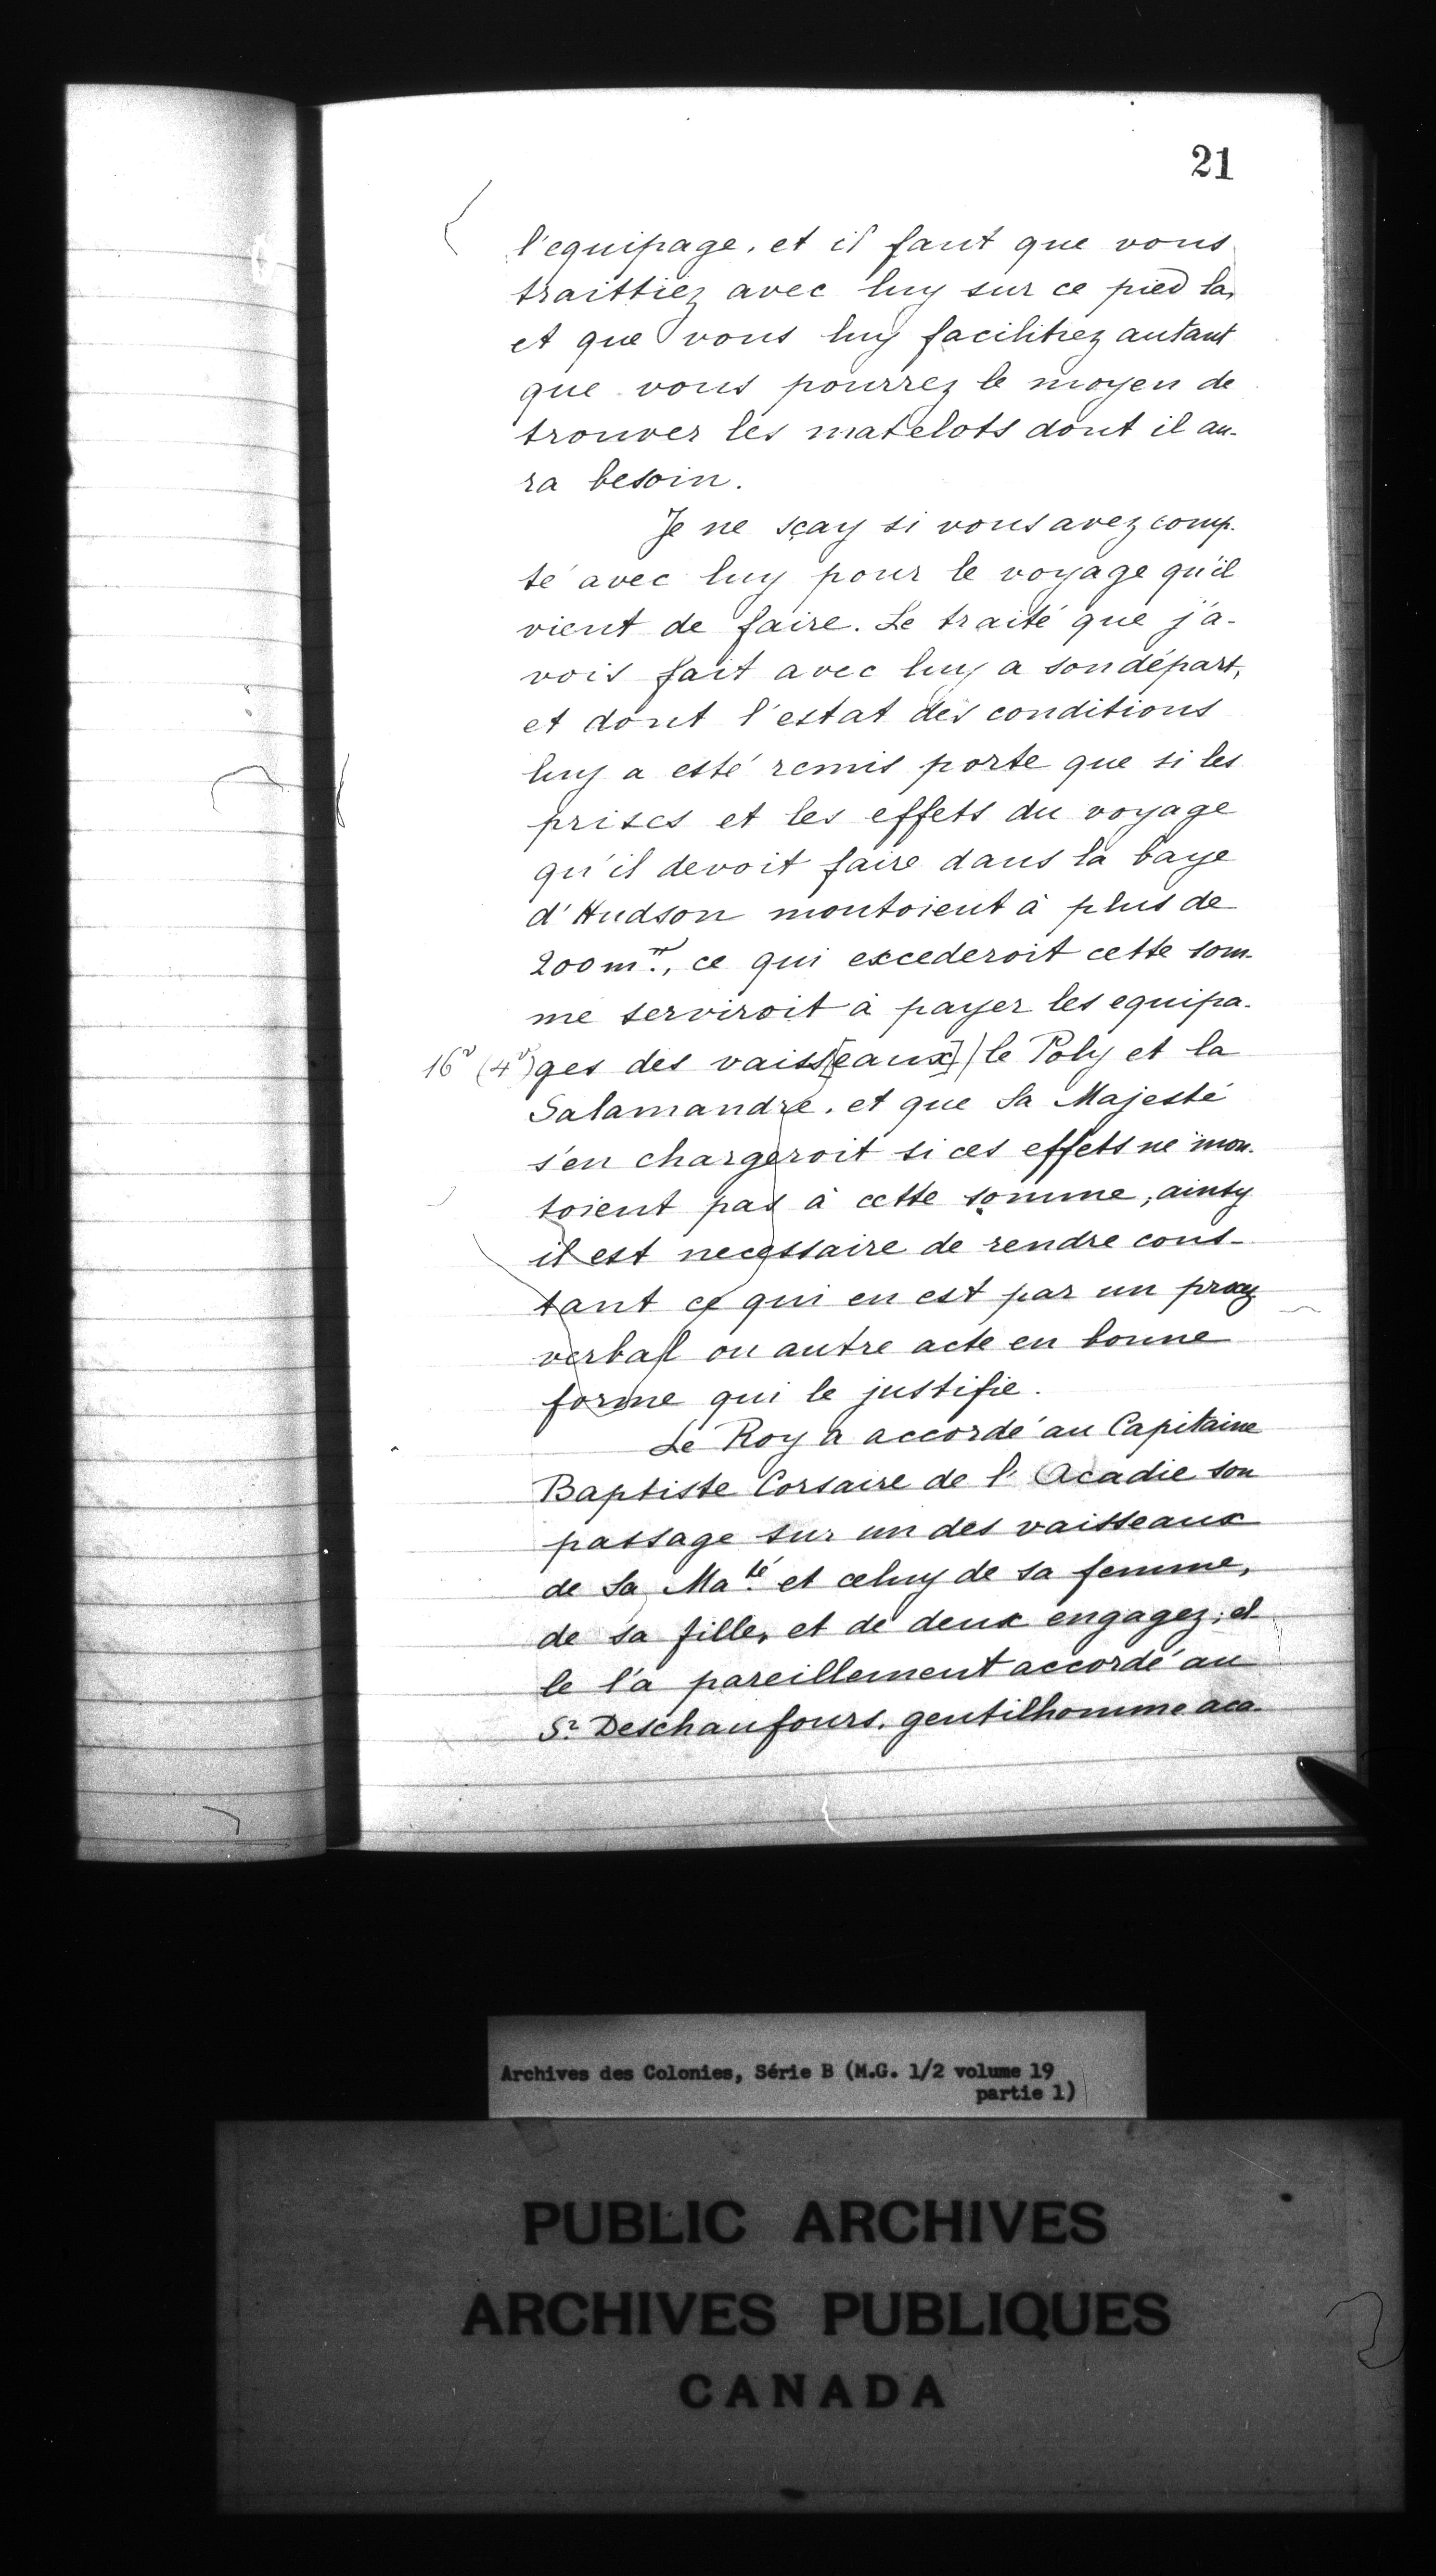 21
l'equipage, et il faut que vous
traittiez avec luy sur ce pied la,
et que vous luy facilitiez autant
que vous pourrez le moyen de
trouver les matelots dont il au-
ra besoin.
Je ne sçay si vous avez comp-
té avec luy pour le voyage qu'il
vient de faire. Le traité que j'a-
vois fait avec luy a son départ,
et dont l'estat des conditions
luy a esté remis porte que si les
prises et les effets du voyage
qu'il devoit faire dans la baye
d'Hudson montoient à plus de
200 m.tt, ce qui excederoit cette som-
me serviroit à payer les equipa-
16v (4v) ges des vaiss[eaux] | le Poly et la
Salamandre, et que Sa Majesté
s'en chargeroit si ces effets ne mon-
toient pas à cette somme, ainsy
il est necessaire de rendre cons-
tant ce qui en est par un procez
verbal ou autre acte en bonne
forme qui le justifie.
Le Roy a accordé au Capitaine
Baptiste Corsaire de l'Acadie son
passage sur un des vaisseaux
de Sa Ma.té et celuy de sa femme,
de sa fille, et de deux engagez; el
le l'a pareillement accordé au
Sr Deschaufours, gentilhomme aca-
Archives des Colonies, Série B (M.G. 1/2 volume 19
partie 1)
PUBLIC ARCHIVES
ARCHIVES PUBLIQUES
CANADA